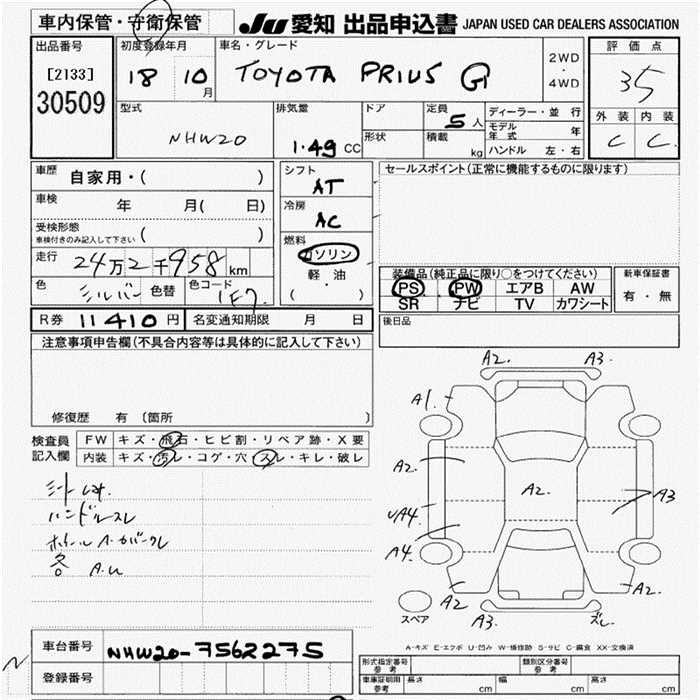 車内保管・守衛保管
JU 愛知 出品申込書 JAPAN USED CAR DEALERS ASSOCIATION
出品番号
[2133]
30509
初度登録年月
18 10月
車名・グレード
TOYOTA PRIUS G
2WD
・
4WD
評価点
35
外装 内装
C C
型式
NHW20
排気量
1.49 CC
ドア
形状
定員 5 人
積載 kg
ディーラー・並行
モデル年式 年
ハンドル 左・右
車歴 自家用・( )
車検 年 月( 日)
受検形態
車検付きのみ記入して下さい ( )
走行 24万2千958 km
色 シルバー 色替 色コード 1F7
シフト
AT
冷房
AC
燃料
ガソリン
軽・油
( )
セールスポイント(正常に機能するものに限ります)
装備品(純正品に限り○をつけてください)
PS PW エアB AW
SR ナビ TV カワシート
新車保証書
有・無
後日品
R券 11410 円 名変通知期限 月 日
注意事項申告欄(不具合内容等は具体的に記入して下さい)
修復歴 有 〔箇所 〕
検査員記入欄
FW キズ・飛石・ヒビ割・リペア跡・X要
内装 キズ・汚レ・コゲ・穴・スレ・キレ・破レ
ハンドルスレ
各 A.U
A2. A3.
A1.
A2.
A2.
A3
UA4.
A4.
A2
A2.
A3.
ズレ
スペア
A-キズ E-エクボ U-凹み W-補修跡 S-サビ C-腐食 XX-交換済
車台番号 NHW20-7562275
登録番号
形式指定番号 参考 類別区分番号 参考
車庫証明用 参考 長さ cm 幅 cm 高さ cm